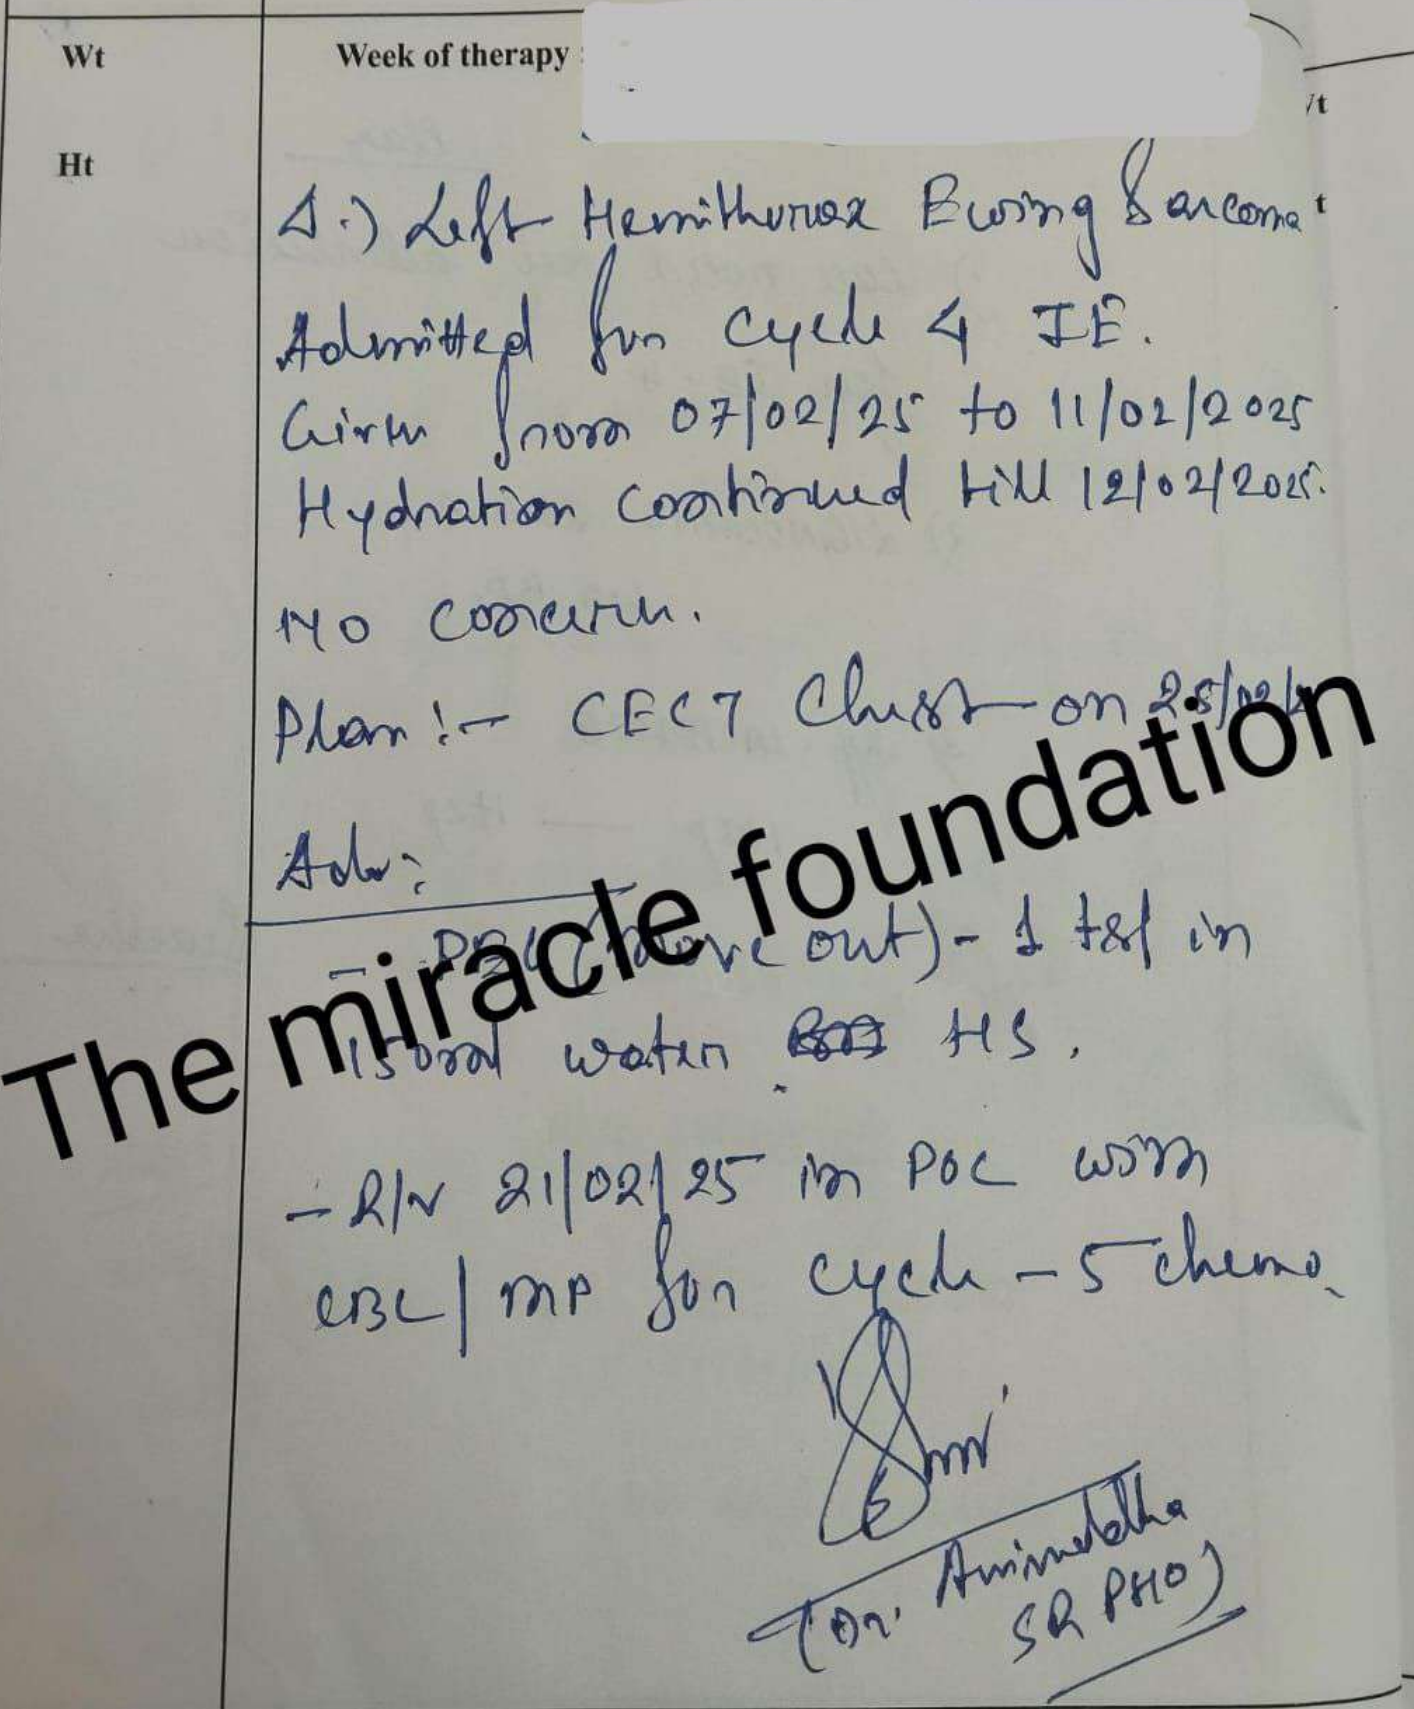 Wt
Week of therapy :
Ht
Δ:) Left Hemithorax Ewing Sarcoma
Admitted for cycle 4 IE.
Given from 07/02/25 to 11/02/2025
Hydration continued till 12/02/2025.
No concern.
Plan :- CECT Chest on
Adv:
out) - 1 tsf in
150ml water HS.
- R/v 21/02/25 in POC with
CBC/ MP for cycle - 5 chemo.
(Dr. Anirueddha
SR PHO)
The miracle foundation